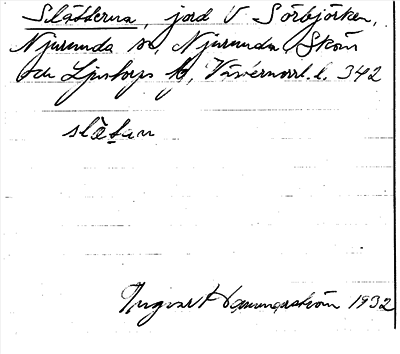 Slåtterna, jord V Sörbjörken,
Njurunda sn, Njurunda Skön
och Ljustorps tg, Västernorrl. l. 342
slåtan
Ingvar Hammarström 1932